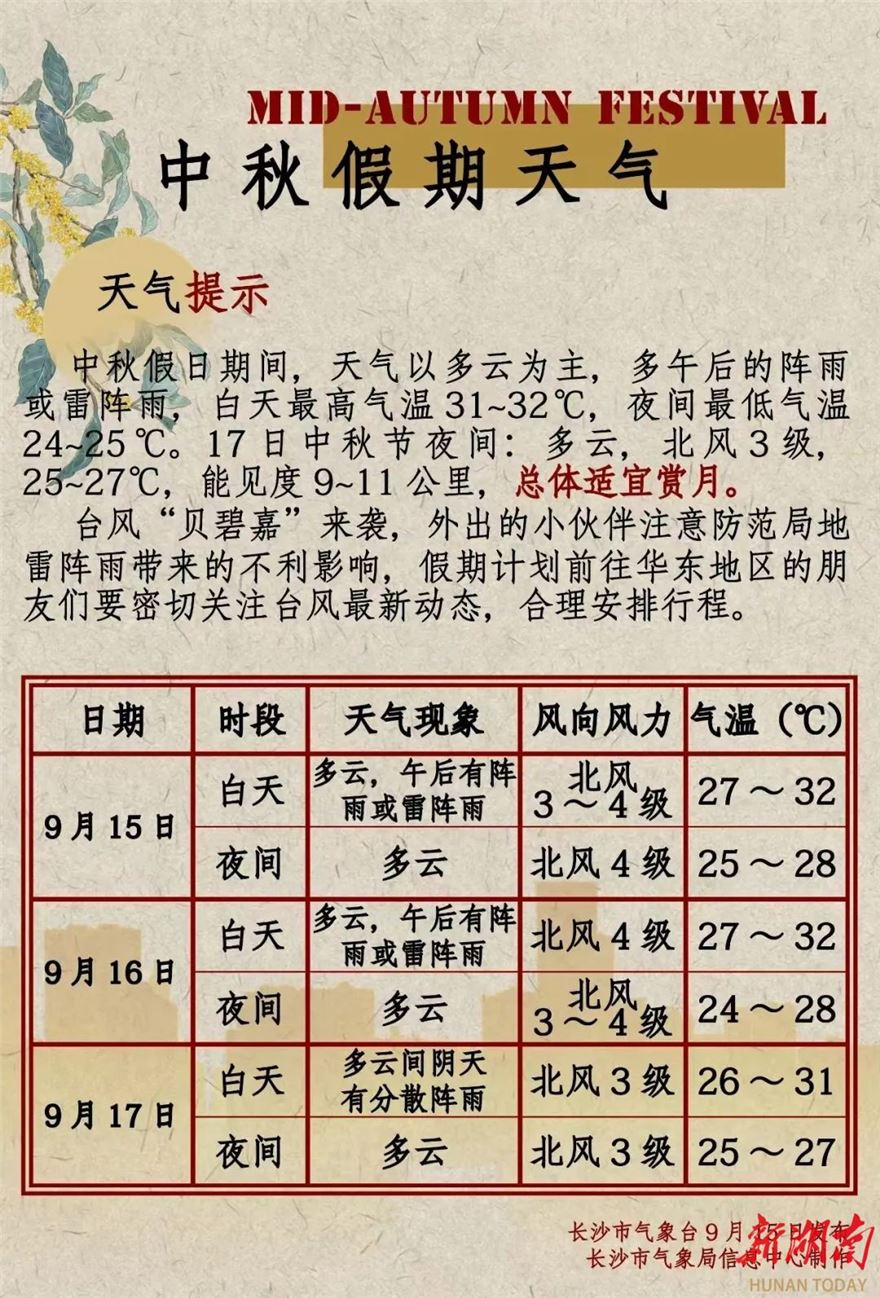 MID-AUTUMN FESTIVAL
中秋假期天气
天气提示
中秋假日期间，天气以多云为主，多午后的阵雨
或雷阵雨，白天最高气温31~32℃，夜间最低气温
24~25℃。17日中秋节夜间：多云，北风3级，
25~27℃，能见度9~11公里，总体适宜赏月。
台风“贝碧嘉”来袭，外出的小伙伴注意防范局地
雷阵雨带来的不利影响，假期计划前往华东地区的朋
友们要密切关注台风最新动态，合理安排行程。
日期 时段 天气现象 风向风力 气温（℃）
9月15日
白天
多云，午后有阵
雨或雷阵雨
北风
3～4级
27～32
夜间 多云 北风4级 25～28
9月16日
白天
多云，午后有阵
雨或雷阵雨
北风4级
27～32
夜间
多云
北风
3～4级
24～28
9月17日
白天
多云间阴天
有分散阵雨
北风3级
26～31
夜间 多云 北风3级 25～27
长沙市气象台9月15日发布
长沙市气象局信息中心制作
新湖南
HUNAN TODAY